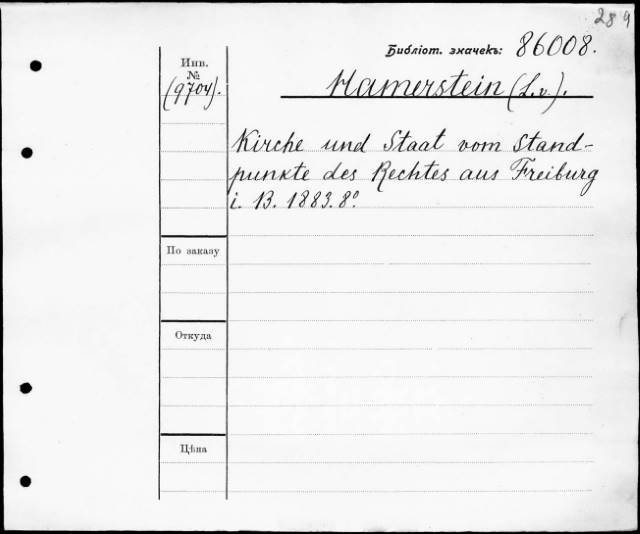 289
Библіот. значекъ: 86008.
Инв.
№
(9704).
Hamerstein (L. v.).
Kirche und Staat vom Stand-
punkte des Rechtes aus Freiburg
i. B. 1883. 8º.
По заказу
Откуда
Цѣна